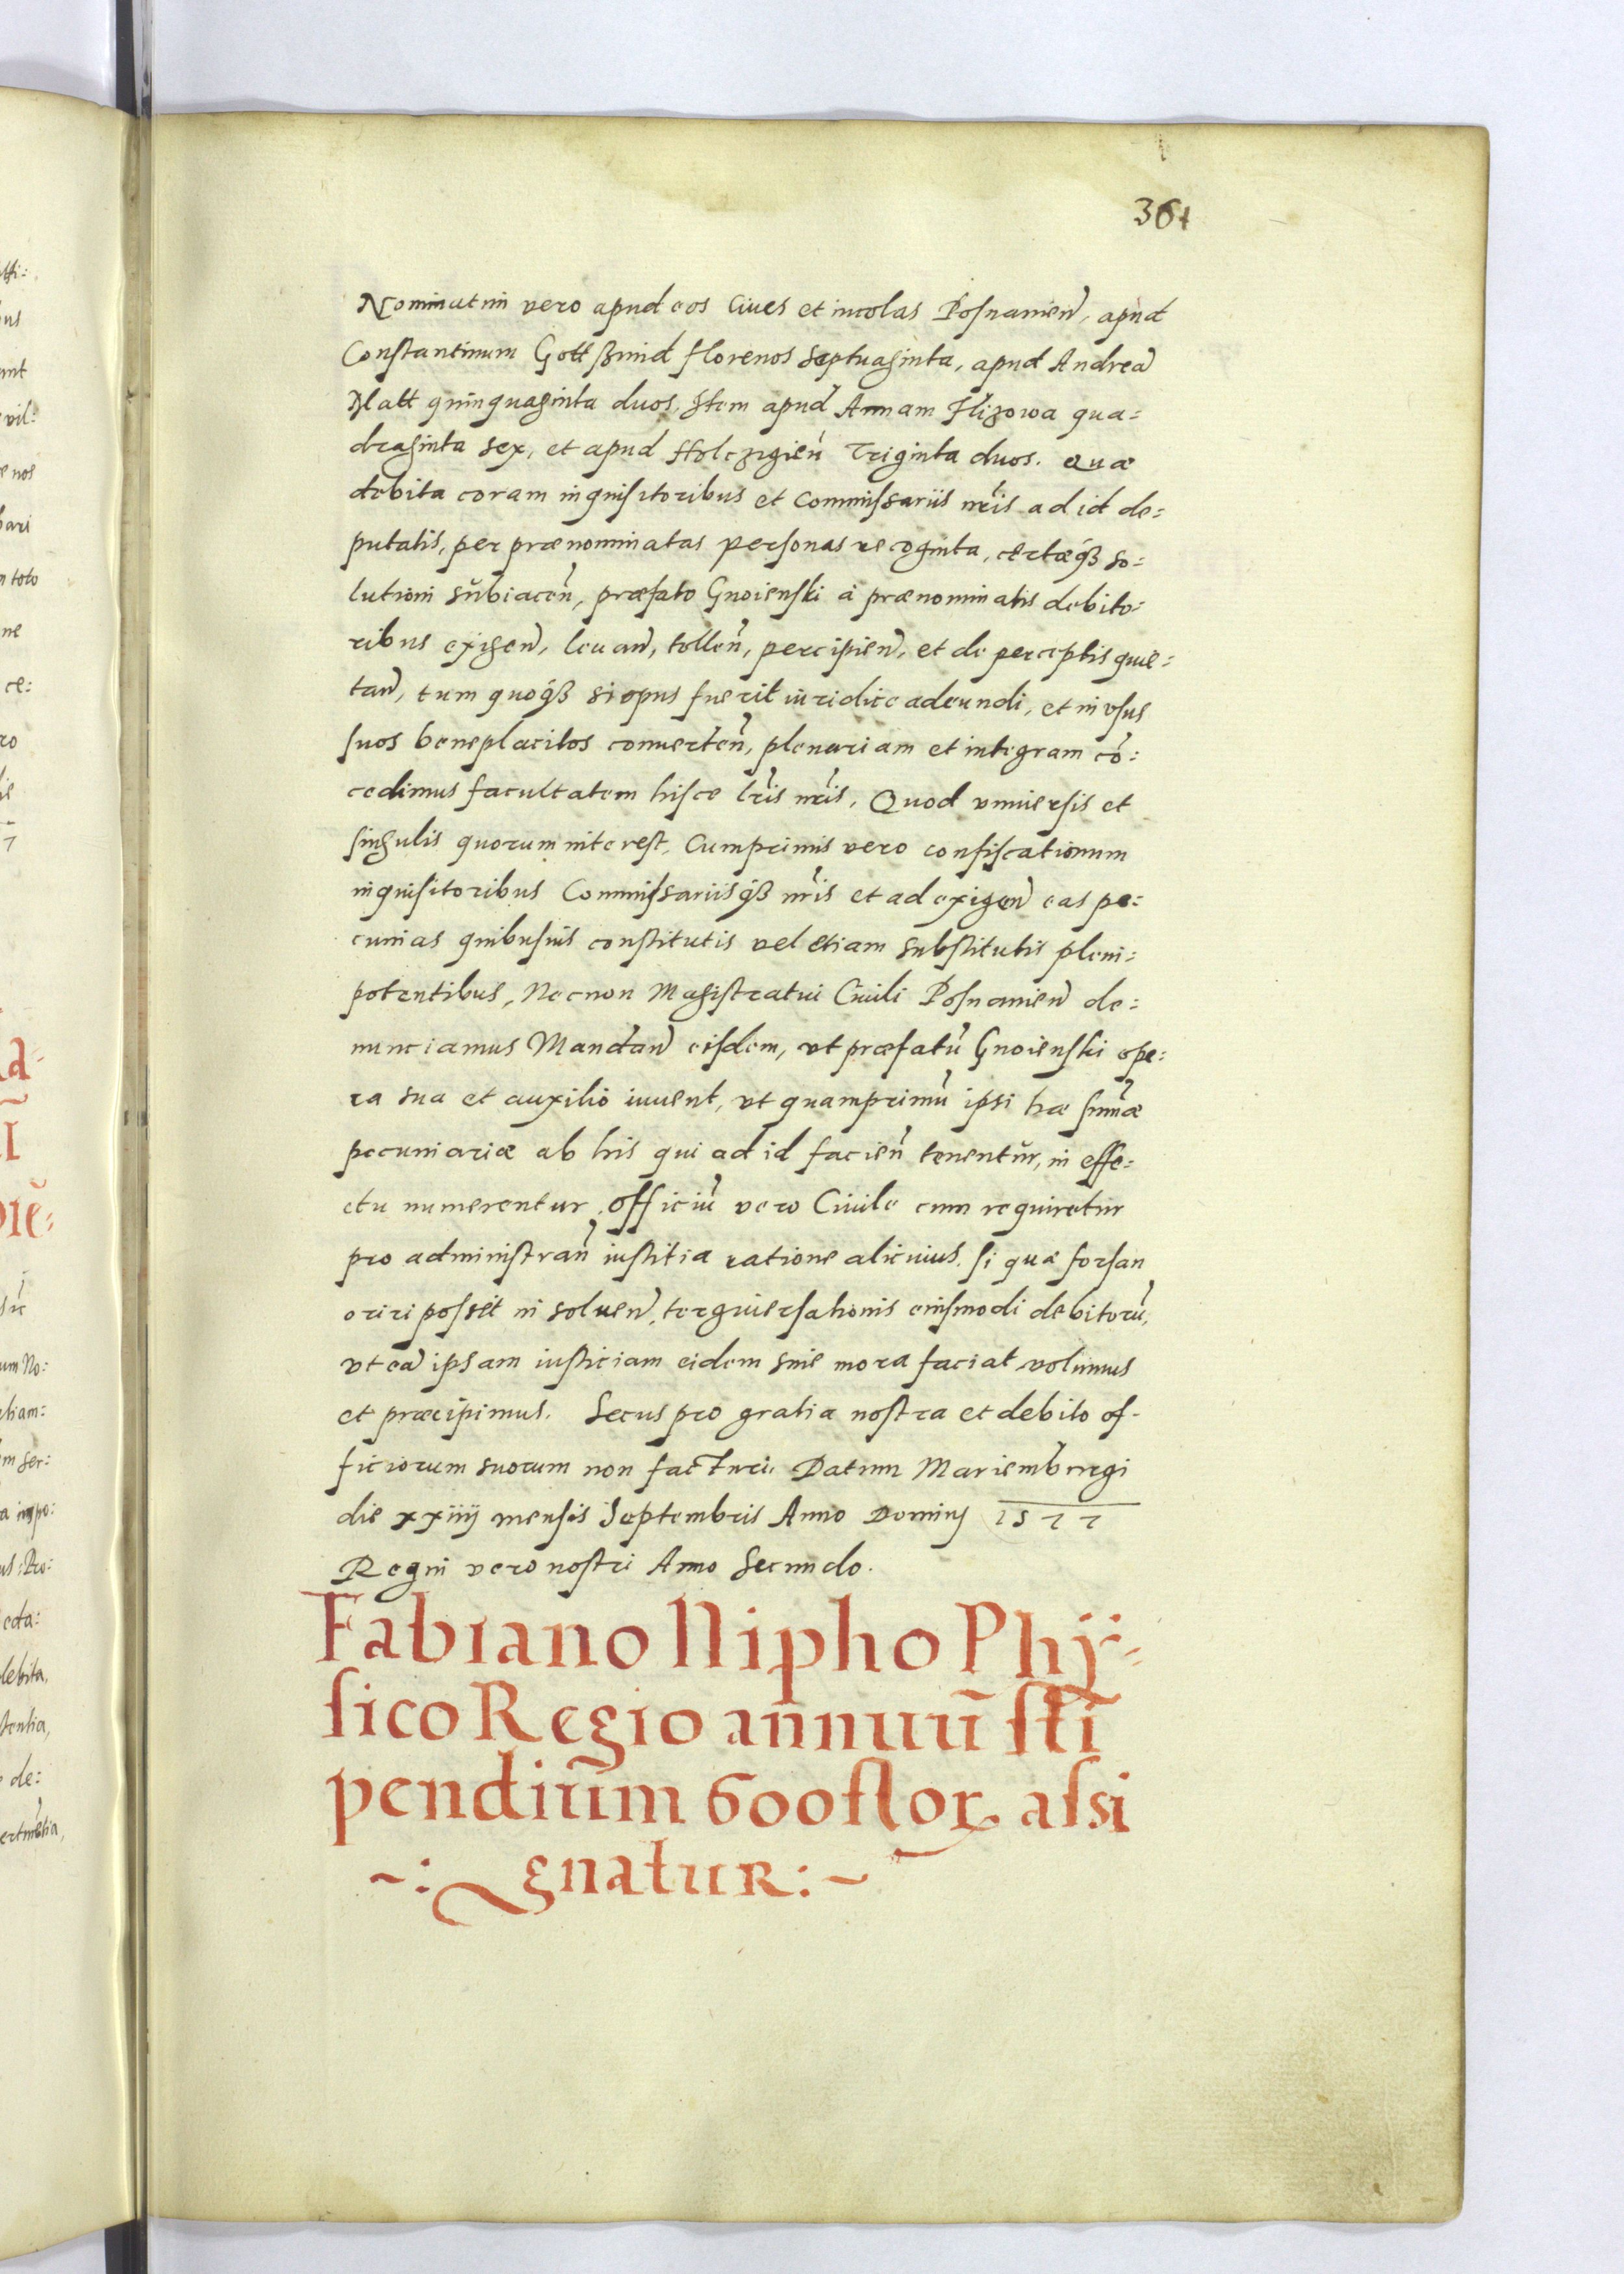 361
Nominatim vero apud eos Ciues et incolas Posnanien̄, apud
Constantinum Gottßmid florenos septuaginta, apud Andreā
Platt quinquaginta duos, Item apud Annam Flizowa qua=
draginta sex, et apud Holczgien̄ Triginta duos. Quæ
debita coram inquisitoribus et Commissariis nr̄is ad id de=
putatis, per prænominatas personas recognita, certæq́ʒ so=
lutioni sŭbiacen̄, præfato Gnoienski à prænominatis debito=
ribus exigen̄, leuan̄, tollen̄, percipien̄, et de perceptis quie=
tan̄, tum quoq́ʒ si opus fuerit iuridice adeundi, et in vsus
suos beneplacitos conuerten̄, plenariam et integram cō=
cedimus facultatem hisce lr̄is nr̄is, Quod vniuersis et
singulis quorum interest, Cumprimis vero confiscationum
inquisitoribus Commissariisq́ʒ nr̄is et ad exigen̄ eas pe=
cunias quibusuis constitutis vel etiam substitutis pleni=
potentibus, Necnon Magistratui Ciuili Posnanien̄ de=
nunciamus Mandan̄ eisdem, vt præfatū Gnoienski ope=
ra sua et auxilio iuuent, vt quamprimū ipsi hæ sum̄æ
pecuniariæ ab his qui ad id facien̄ tenentŭr, in effe=
ctu numerentur, officiū vero Ciuile cum requiretur
pro administran̄ iustitia ratione alicuius, si quæ forsan
oriri posset in soluen̄, terguiersationis eiusmodi debitorū,
vt eā ipsam iusticiam eidem sine mora faciat volumus
et præcipimus. Secus pro gratia nostra et debito of-
ficiorum suorum non facturi. Datum Mariemburgi
die xxiiij mensis Septembris Anno Dominj 1577
Regni vero nostri Anno Secundo.
Fabiano Nipho Phÿ-
sico Regio annuū sti
pendium 600 flor. assi
~:gnatur:~